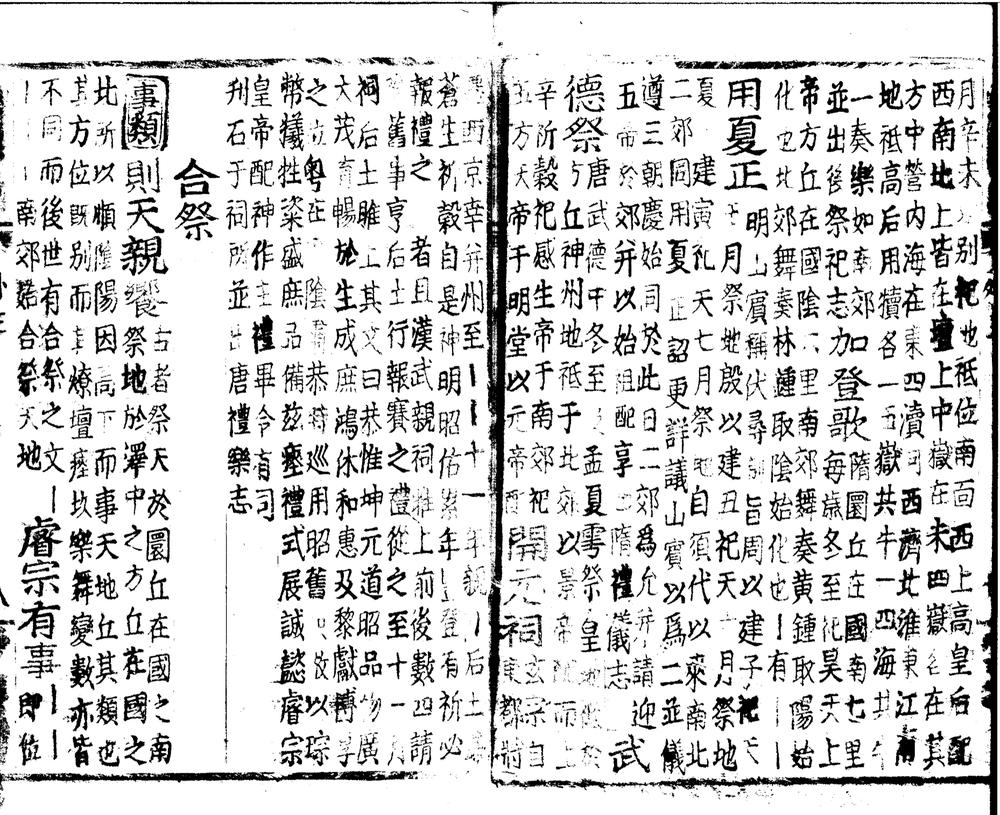 月辛未別祀地祗位南面西上高皇后配
西南北上皆在壇上中嶽在未四嶽各在其
方中營內海在東四瀆西濟北淮東江南
地祗高后用犢各一五嶽共牛一四海共牛
一奏樂如南郊口陰圜丘在國南七里
並出後祭祀志力登歌每歲冬至祀昊天上
帝方丘在國陰六里南郊舞奏黄鍾取陽始
化也北郊舞奏林鍾取陰始化也丨有丨丨
用夏正明山賓稱伏尋旨周以建子祀天
五月祭地殷以建丑祀天十二月祭地
夏建寅祀天七月祭地自須代以來南北
二郊同用夏正詔更詳議山賓以爲二並儀
遵三朝慶始同於此日二郊爲允并請迎
五帝於郊并以始祖配享隋禮儀志武
德祭唐武德中冬至及孟夏雩祭皇地祗於
方丘神州地祗于北郊以景帝配而上
辛祈穀祀感生帝于南郊祀玄宗自
五方天帝于明堂以元帝配開元祠東都將
西京幸并州至丨丨十一年親丨后土爲
蒼生祈穀自是神明昭佑累年登有祈必
報禮之者且漢武親祠脽上前後數四請
舊事享后土行報賽之禮從之至十一月
祠后土脽上其文曰恭惟坤元道昭品物廣
大茂育暢於生成庶鴻休和惠及黎獻博厚
之粤在陰肅恭時巡用昭舊以琮
幣犧牲粢盛庶品備玆瘞禮式展誠懿睿宗
皇帝配神作主禮畢令有司
刋石于祠所並出唐禮樂志
合祭
事類則天親饗古者祭天於圜丘在國之南
祭地於澤中之方丘在國之
北所以順陰陽因高下而事天地丘其類也
其方位既別而其燎壇瘞坎樂舞變數亦皆
不同而後世有合祭之文丨睿宗有事丨丨
丨丨丨南郊始合祭天地即位